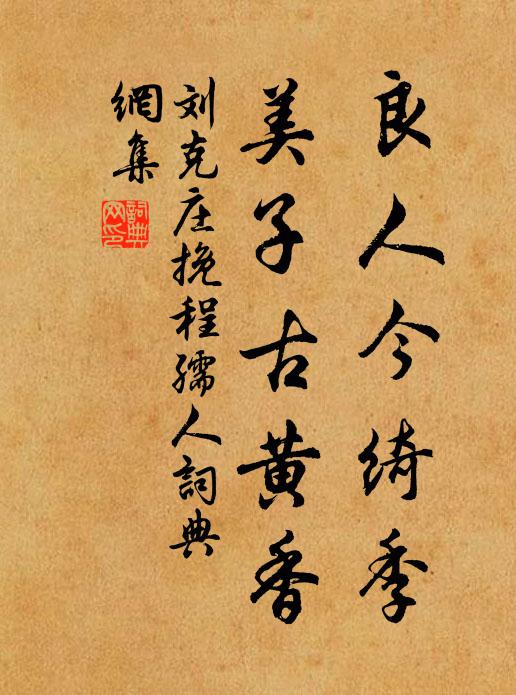 良人今绮季
美子古黄香
刘克庄挽程孺人詞典
網集
詞典
网印